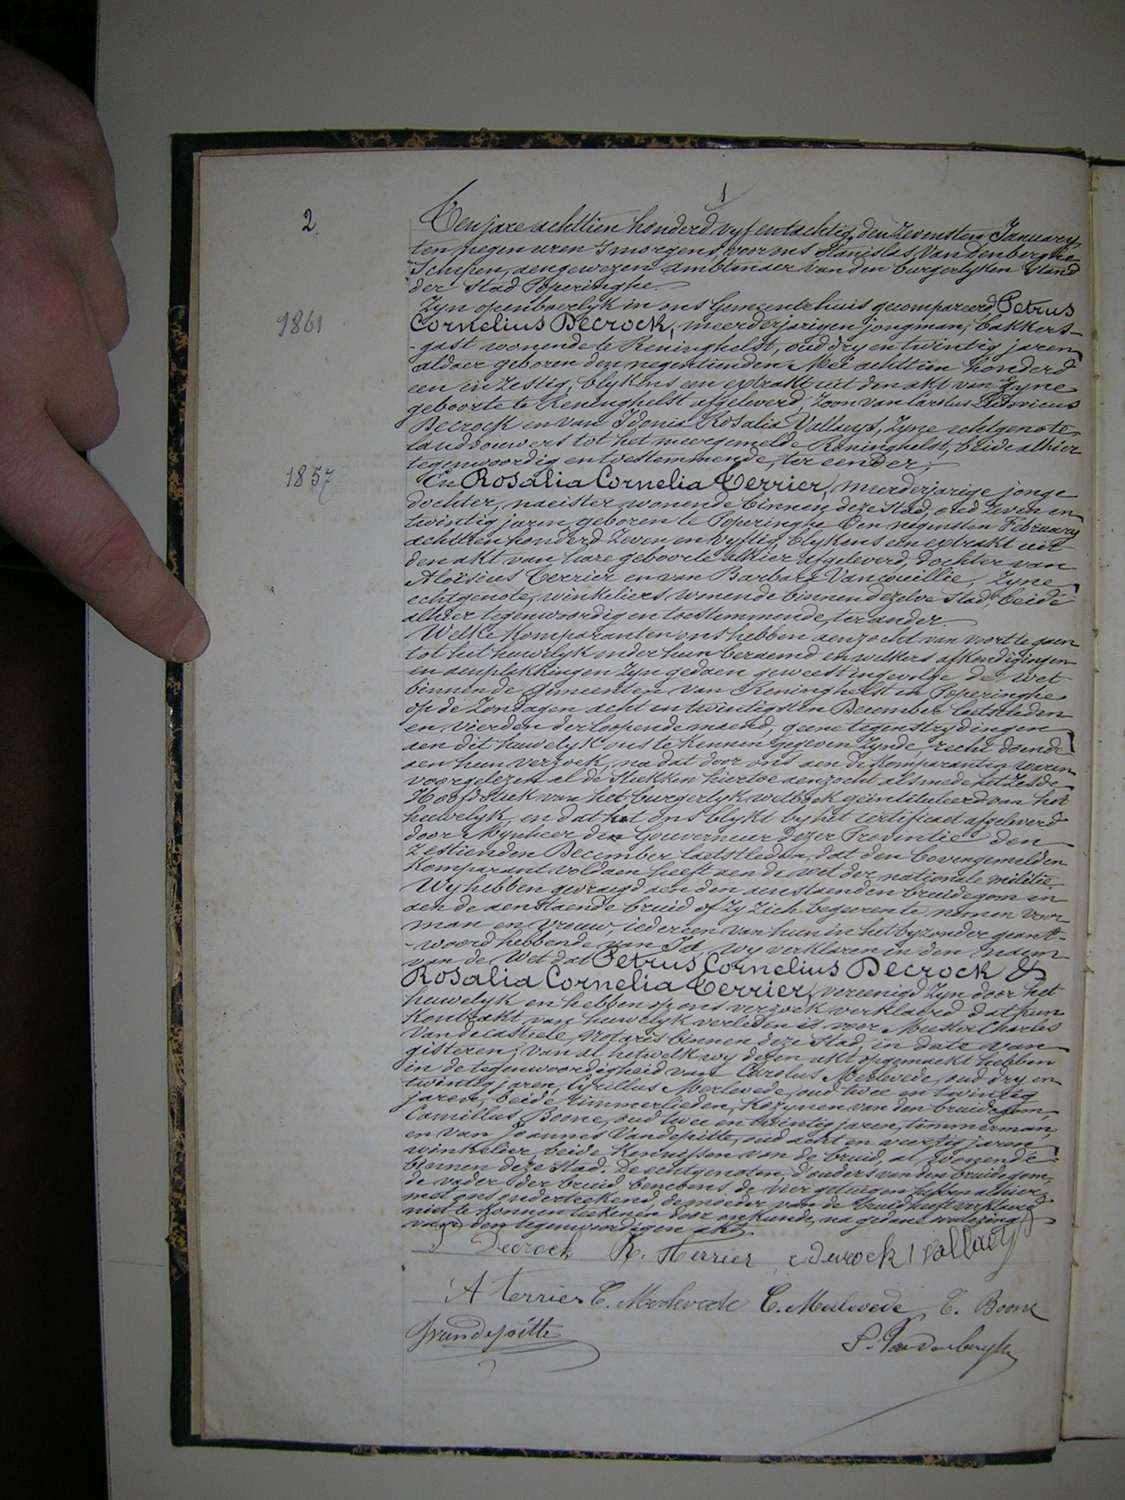 1
2
Ten jare achttien honderd vyf en tachtig den zevensten January
ten negen uren s'morgens, voor ons Stanislas Van den Berghe
Schepen, aengewezen ambtenaer van den burgerlyken stand
der stad Poperinghe.
Zyn openbaerlyk in ons Gemeentehuis gecompareerd, Petrus
1861
Cornelius Decrock, meerderjarigen jongman, bakkers-
-gast wonende te Reninghelst, oud dry en twintig jaren
aldaer geboren den negentienden Mei achttien honderd
een en zestig, blykens een extrakt uit den akt van zyne
geboorte te Reninghelst afgeleverd, zoon van Carolus Ludovicus
Decrock en van Idonia Rosalia Vallaeys, zyne echtgenote
landbouwers tot het meergemelde Reninghelst, beide alhier
tegenwoordig en toestemmende, ter eender.
1857
En Rosalia Cornelia Terrier, meerderjarige jonge
dochter, naeister wonende binnen deze stad, oud zeven en
twintig jaren, geboren te Poperinghe den negensten February
achttien honderd zeven en vyftig, blykens een extrakt uit
den akt van hare geboorte alhier afgeleverd, dochter van
Aloisius Terrier en van Barbara Vancouillie, zyne
echtgenote, winkeliers, wonende binnen dezelve stad, beide
alhier tegenwoordig en toestemmende, ter ander.
Welke komparanten ons hebben aenzocht van voort te gaen
tot het huwelyk onder hun beraemd en welkers afkondigingen
en aenplekkingen zyn gedaen geweest ingevolge de wet
binnen de Gemeenten van Reninghelst en Poperinghe
op de Zondagen acht en twintigsten December laetstleden
en vierden der loopende maend, geene tegenstrydingen
aen dit huwelyk ons te kennen gegeven zynde, recht doende
aen hun verzoek, na dat door ons aen de komparanten waren
voorgelezen al de stukken hiertoe aenzocht alsmede het zesde
Hoofdstuk van het burgerlyk wetboek geïntituleerd van het
huwelyk, en dat het ons blykt by het certificaet afgeleverd
door Mynheer den Gouverneur dezer Provintie den
zestienden December laetstleden, dat den bovengemelden
komparant voldaen heeft aen de wet der nationale militie.
Wy hebben gevraegd aen den aenstaenden bruidegom en
aen de aenstaende bruid of zy zich begeeren te nemen voor
man en vrouw, iedereen van hun in het byzonder geant-
-woord hebbende van Ja, wy verklaren in den naem
van de Wet dat Petrus Cornelius Decrock &
Rosalia Cornelia Terrier, vereenigd zyn door het
huwelyk en hebben op ons verzoek verklaerd dat hun
kontrakt van huwelyk verleden is voor Meester Charles
Van de casteele, Notaris binnen deze stad, in date van
gisteren; van al hetwelk wy dezen akt opgemaekt hebben
in de tegenwoordigheid van Carolus Merlevede, oud dry en
twintig jaren, Cyrillus Merlevede, oud twee en twintig
jaren, beide timmerlieden, kozynen van den bruidegom,
Camillus Boone, oud twee en twintig jaren, timmerman,
en van Joannes Vandepitte, oud acht en veertig jaren
winkelier, beide kennissen van de bruid, al wonende
binnen deze stad. De echtgenoten, d'ouders van den bruidegom,
de vader der bruid benevens de vier getuigen hebben alhier
met ons onderteekend, de moeder van de bruid heeft verklaerd
niet te konnen teekenen door onkunde, na gedane voorlezing
van den tegenwoordigen akt.
P Decrock R. Therrier Decrock I Vallaeys
A terrier C. Merlevede C. Merlevede C. Boone
J Vandepitte S. Vandenberghe